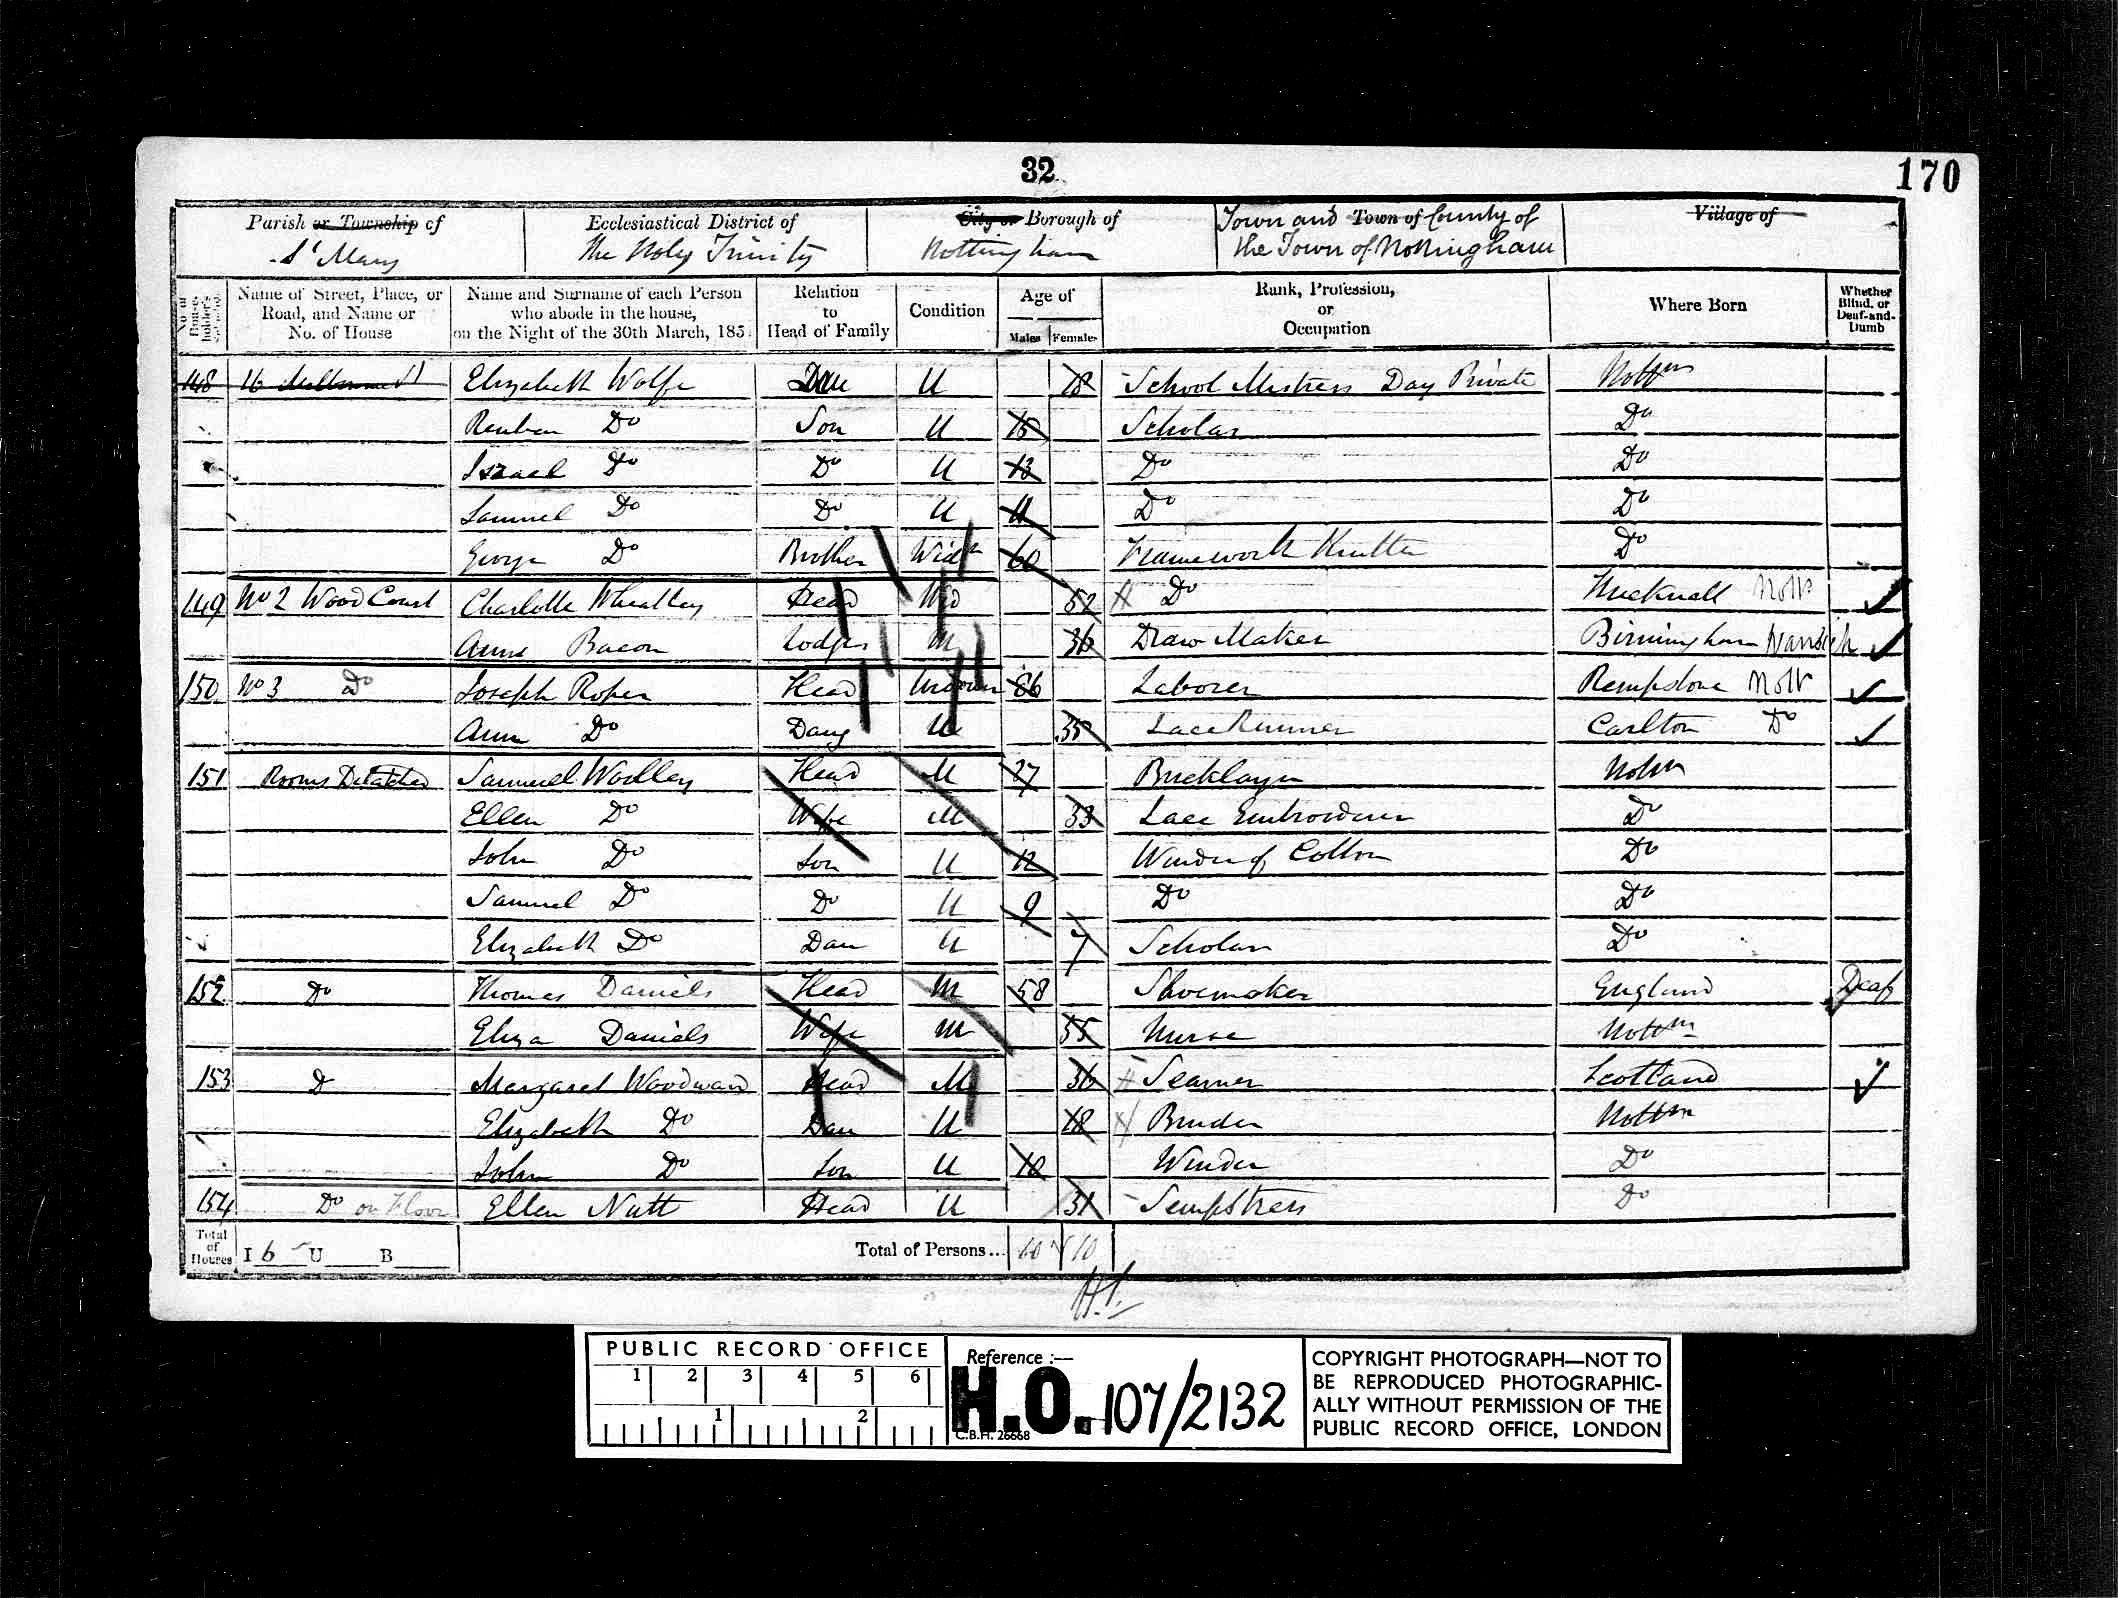 32
170
Parish or Township of
St Mary
Ecclesiastical District of
The Holy Trinity
City or Borough of
Nottingham
Town and Town of County of
the Town of Nottingham
Village of
Name of Street, Place, or Road, and Name or No. of House
Name and Surname of each Person who abode in the house, on the Night of the 30th March, 185
Relation to Head of Family
Condition
Age of
Males Females
Rank, Profession, or Occupation
Where Born
Whether Blind, or Deaf-and-Dumb
148 16 Elizabeth Wolfe Dau U 18 School Mistress Day Private Nottm
Reuben Do Son U 15 Scholar Do
Israel Do Do U 13 Do Do
Samuel Do Do U 11 Do Do
George Do Brother Widr 60 Framework Knitter Do
149 No 2 Wood Court Charlotte Wheatley Head Wid 52 Do Hucknall Notts
Anns Bacon Lodger M 36 Draw Maker Birmingham
150 No 3 Do Joseph Roper Head 66 Laborer Rempstone Nott
Ann Do Daug U 35 Lace Runner Carlton Do
151 Rooms Detatched Samuel Woolley Head M 37 Bricklayer Nottm
Ellen Do Wife M 33 Lace Embroiderer Do
John Do Son U 12 Winder of Cotton Do
Samuel Do Do U 9 Do Do
Elizabeth Do Dau U 7 Scholar Do
152 Do Thomas Daniels Head M 58 Shoemaker England Deaf
Eliza Daniels Wife M 55 Nurse Nottm
153 D Margaret Woodward Head M 36 Seamer Scotland
Elizabeth Do Dau U 18 Nottm
John Do Son U 10 Winder Do
154 Do on Floor Ellen Nutt Head U 31 Sempstress Do
Total of Houses I 6 U B Total of Persons... 10 10
PUBLIC RECORD OFFICE
1 2 3 4 5 6
1 2
Reference :—
H.O. 107/2132
C.B.H. 26668
COPYRIGHT PHOTOGRAPH—NOT TO
BE REPRODUCED PHOTOGRAPHIC-
ALLY WITHOUT PERMISSION OF THE
PUBLIC RECORD OFFICE, LONDON